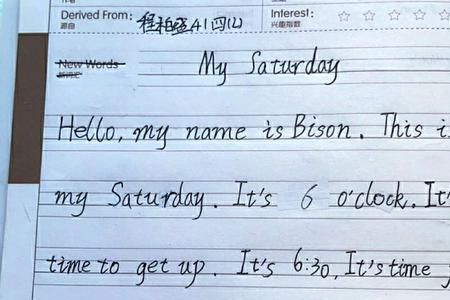 Derived From: 程柏
源自
Interest: ☆ ☆ ☆ ☆ ☆
兴趣指数
New Words
My Saturday
Hello, my name is Bison. This i
my Saturday. It's 6 o'clock. It'
time to get up. It's 6:30, It's time